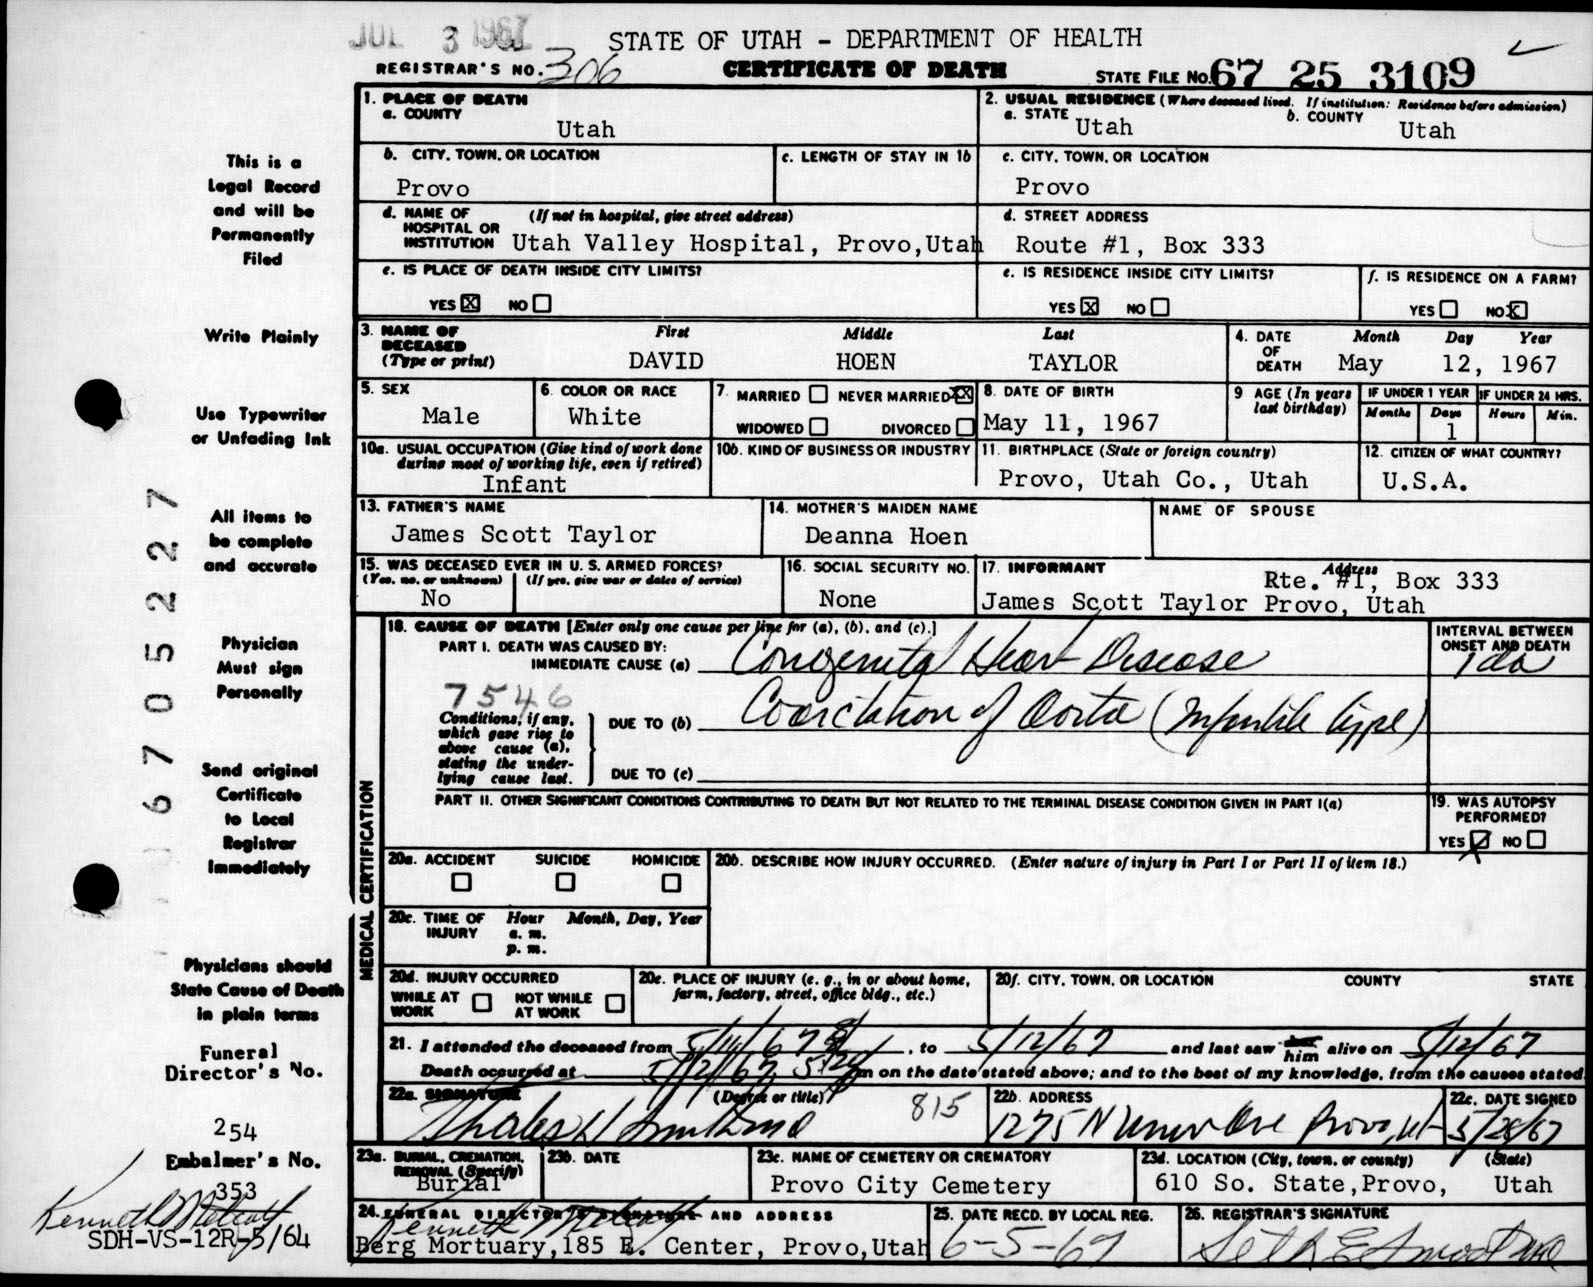 JUL 3 1967
STATE OF UTAH - DEPARTMENT OF HEALTH
REGISTRAR'S NO. 306
CERTIFICATE OF DEATH
STATE FILE NO. 67 25 3109
1. PLACE OF DEATH
a. COUNTY
Utah
2. USUAL RESIDENCE (Where deceased lived. If institution: Residence before admission)
a. STATE
Utah
b. COUNTY
Utah
b. CITY, TOWN, OR LOCATION
Provo
c. LENGTH OF STAY IN 1b
c. CITY, TOWN, OR LOCATION
Provo
d. NAME OF HOSPITAL OR INSTITUTION
(If not in hospital, give street address)
Utah Valley Hospital, Provo,Utah
d. STREET ADDRESS
Route #1, Box 333
e. IS PLACE OF DEATH INSIDE CITY LIMITS?
YES X NO
e. IS RESIDENCE INSIDE CITY LIMITS?
YES X NO
f. IS RESIDENCE ON A FARM?
YES NO X
3. NAME OF DECEASED
(Type or print)
First Middle Last
DAVID HOEN TAYLOR
4. DATE OF DEATH
Month Day Year
May 12, 1967
5. SEX
Male
6. COLOR OR RACE
White
7. MARRIED NEVER MARRIED X
WIDOWED DIVORCED
8. DATE OF BIRTH
May 11, 1967
9 AGE (In years last birthday)
IF UNDER 1 YEAR
Months Days
1
IF UNDER 24 HRS.
Hours Min.
10a. USUAL OCCUPATION (Give kind of work done during most of working life, even if retired)
Infant
10b. KIND OF BUSINESS OR INDUSTRY
11. BIRTHPLACE (State or foreign country)
Provo, Utah Co., Utah
12. CITIZEN OF WHAT COUNTRY?
U.S.A.
13. FATHER'S NAME
James Scott Taylor
14. MOTHER'S MAIDEN NAME
Deanna Hoen
NAME OF SPOUSE
15. WAS DECEASED EVER IN U. S. ARMED FORCES?
(Yes, no, or unknown) (If yes, give war or dates of service)
No
16. SOCIAL SECURITY NO.
None
17. INFORMANT
Address
Rte. #1, Box 333
James Scott Taylor Provo, Utah
MEDICAL CERTIFICATION
18. CAUSE OF DEATH [Enter only one cause per line for (a), (b), and (c).]
PART I. DEATH WAS CAUSED BY:
IMMEDIATE CAUSE (a) Congenital Heart Disease
INTERVAL BETWEEN ONSET AND DEATH
1 da
7546
Conditions, if any, which gave rise to above cause (a), stating the underlying cause last.
DUE TO (b) Coarctation of Aorta (Infantile type)
DUE TO (c)
PART II. OTHER SIGNIFICANT CONDITIONS CONTRIBUTING TO DEATH BUT NOT RELATED TO THE TERMINAL DISEASE CONDITION GIVEN IN PART I(a)
19. WAS AUTOPSY PERFORMED?
YES X NO
20a. ACCIDENT SUICIDE HOMICIDE
20b. DESCRIBE HOW INJURY OCCURRED. (Enter nature of injury in Part I or Part II of item 18.)
20c. TIME OF INJURY
Hour Month, Day, Year
a. m.
p. m.
20d. INJURY OCCURRED
WHILE AT WORK NOT WHILE AT WORK
20e. PLACE OF INJURY (e. g., in or about home, farm, factory, street, office bldg., etc.)
20f. CITY, TOWN, OR LOCATION COUNTY STATE
21. I attended the deceased from 5/11/67, to 5/12/67 and last saw him alive on 5/12/67
Death occurred at 5/12/67 m on the date stated above; and to the best of my knowledge, from the causes stated.
22a. SIGNATURE (Degree or title)
815
22b. ADDRESS
1275 N Univ Ave Provo, Ut
22c. DATE SIGNED
5/28/67
23a. BURIAL, CREMATION, REMOVAL (Specify)
Burial
23b. DATE
23c. NAME OF CEMETERY OR CREMATORY
Provo City Cemetery
23d. LOCATION (City, town, or county) (State)
610 So. State,Provo, Utah
24. FUNERAL DIRECTOR'S SIGNATURE AND ADDRESS
Kenneth Metcalf
Berg Mortuary,185 E. Center, Provo,Utah
25. DATE RECD. BY LOCAL REG.
6-5-67
26. REGISTRAR'S SIGNATURE
This is a
Legal Record
and will be
Permanently
Filed
Write Plainly
Use Typewriter
or Unfading Ink
All items to
be complete
and accurate
Physician
Must sign
Personally
Send original
Certificate
to Local
Registrar
Immediately
Physicians should
State Cause of Death
in plain terms
Funeral
Director's No.
254
Embalmer's No.
353
Kenneth Metcalf
SDH-VS-12R-5/64
6705227